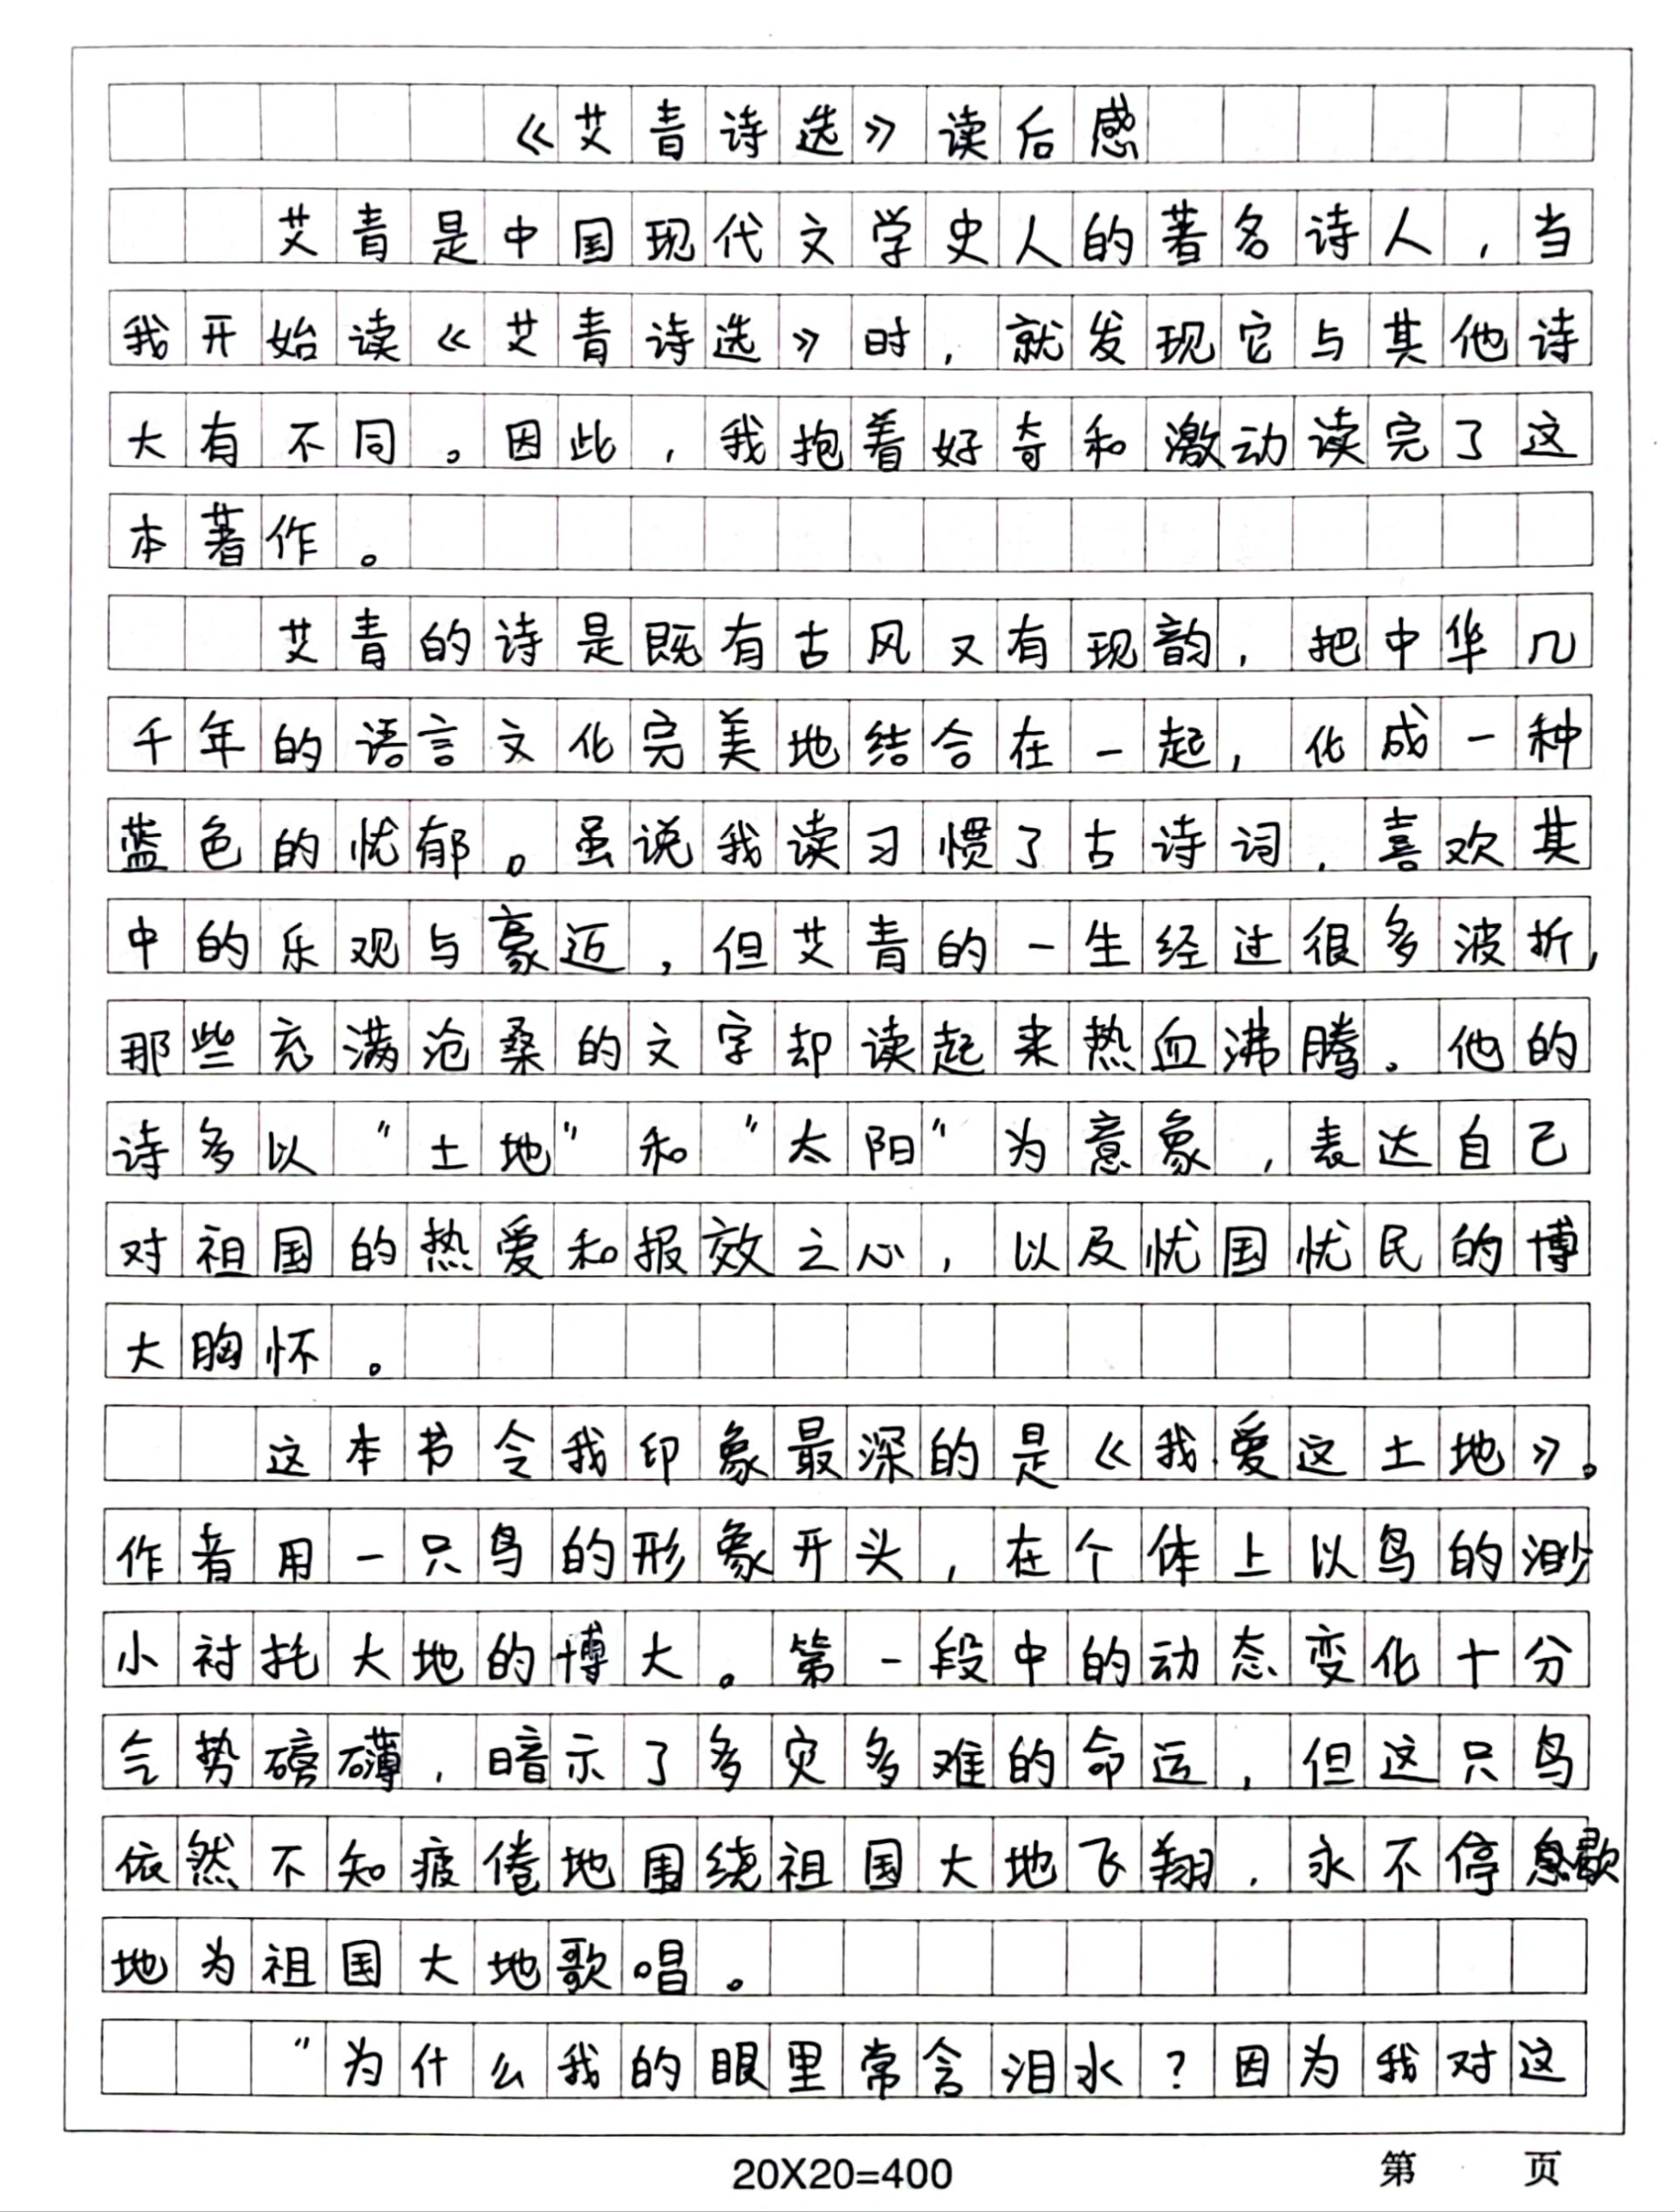 《艾青诗选》读后感
艾青是中国现代文学史人的著名诗人,当
我开始读《艾青诗选》时,就发现它与其他诗
大有不同。因此,我抱着好奇和激动读完了这
本著作。
艾青的诗是既有古风又有现韵,把中华几
千年的语言文化完美地结合在一起,化成一种
蓝色的忧郁。虽说我读习惯了古诗词,喜欢其
中的乐观与豪迈,但艾青的一生经过很多波折,
那些充满沧桑的文字却读起来热血沸腾。他的
诗多以“土地”和“太阳”为意象,表达自己
对祖国的热爱和报效之心,以及忧国忧民的博
大胸怀。
这本书令我印象最深的是《我爱这土地》。
作者用一只鸟的形象开头,在个体上以鸟的渺
小衬托大地的博大。第一段中的动态变化十分
气势磅礴,暗示了多灾多难的命运,但这只鸟
依然不知疲倦地围绕祖国大地飞翔,永不停息歇
地为祖国大地歌唱。
“为什么我的眼里常含泪水?因为我对这
20X20=400
第 页